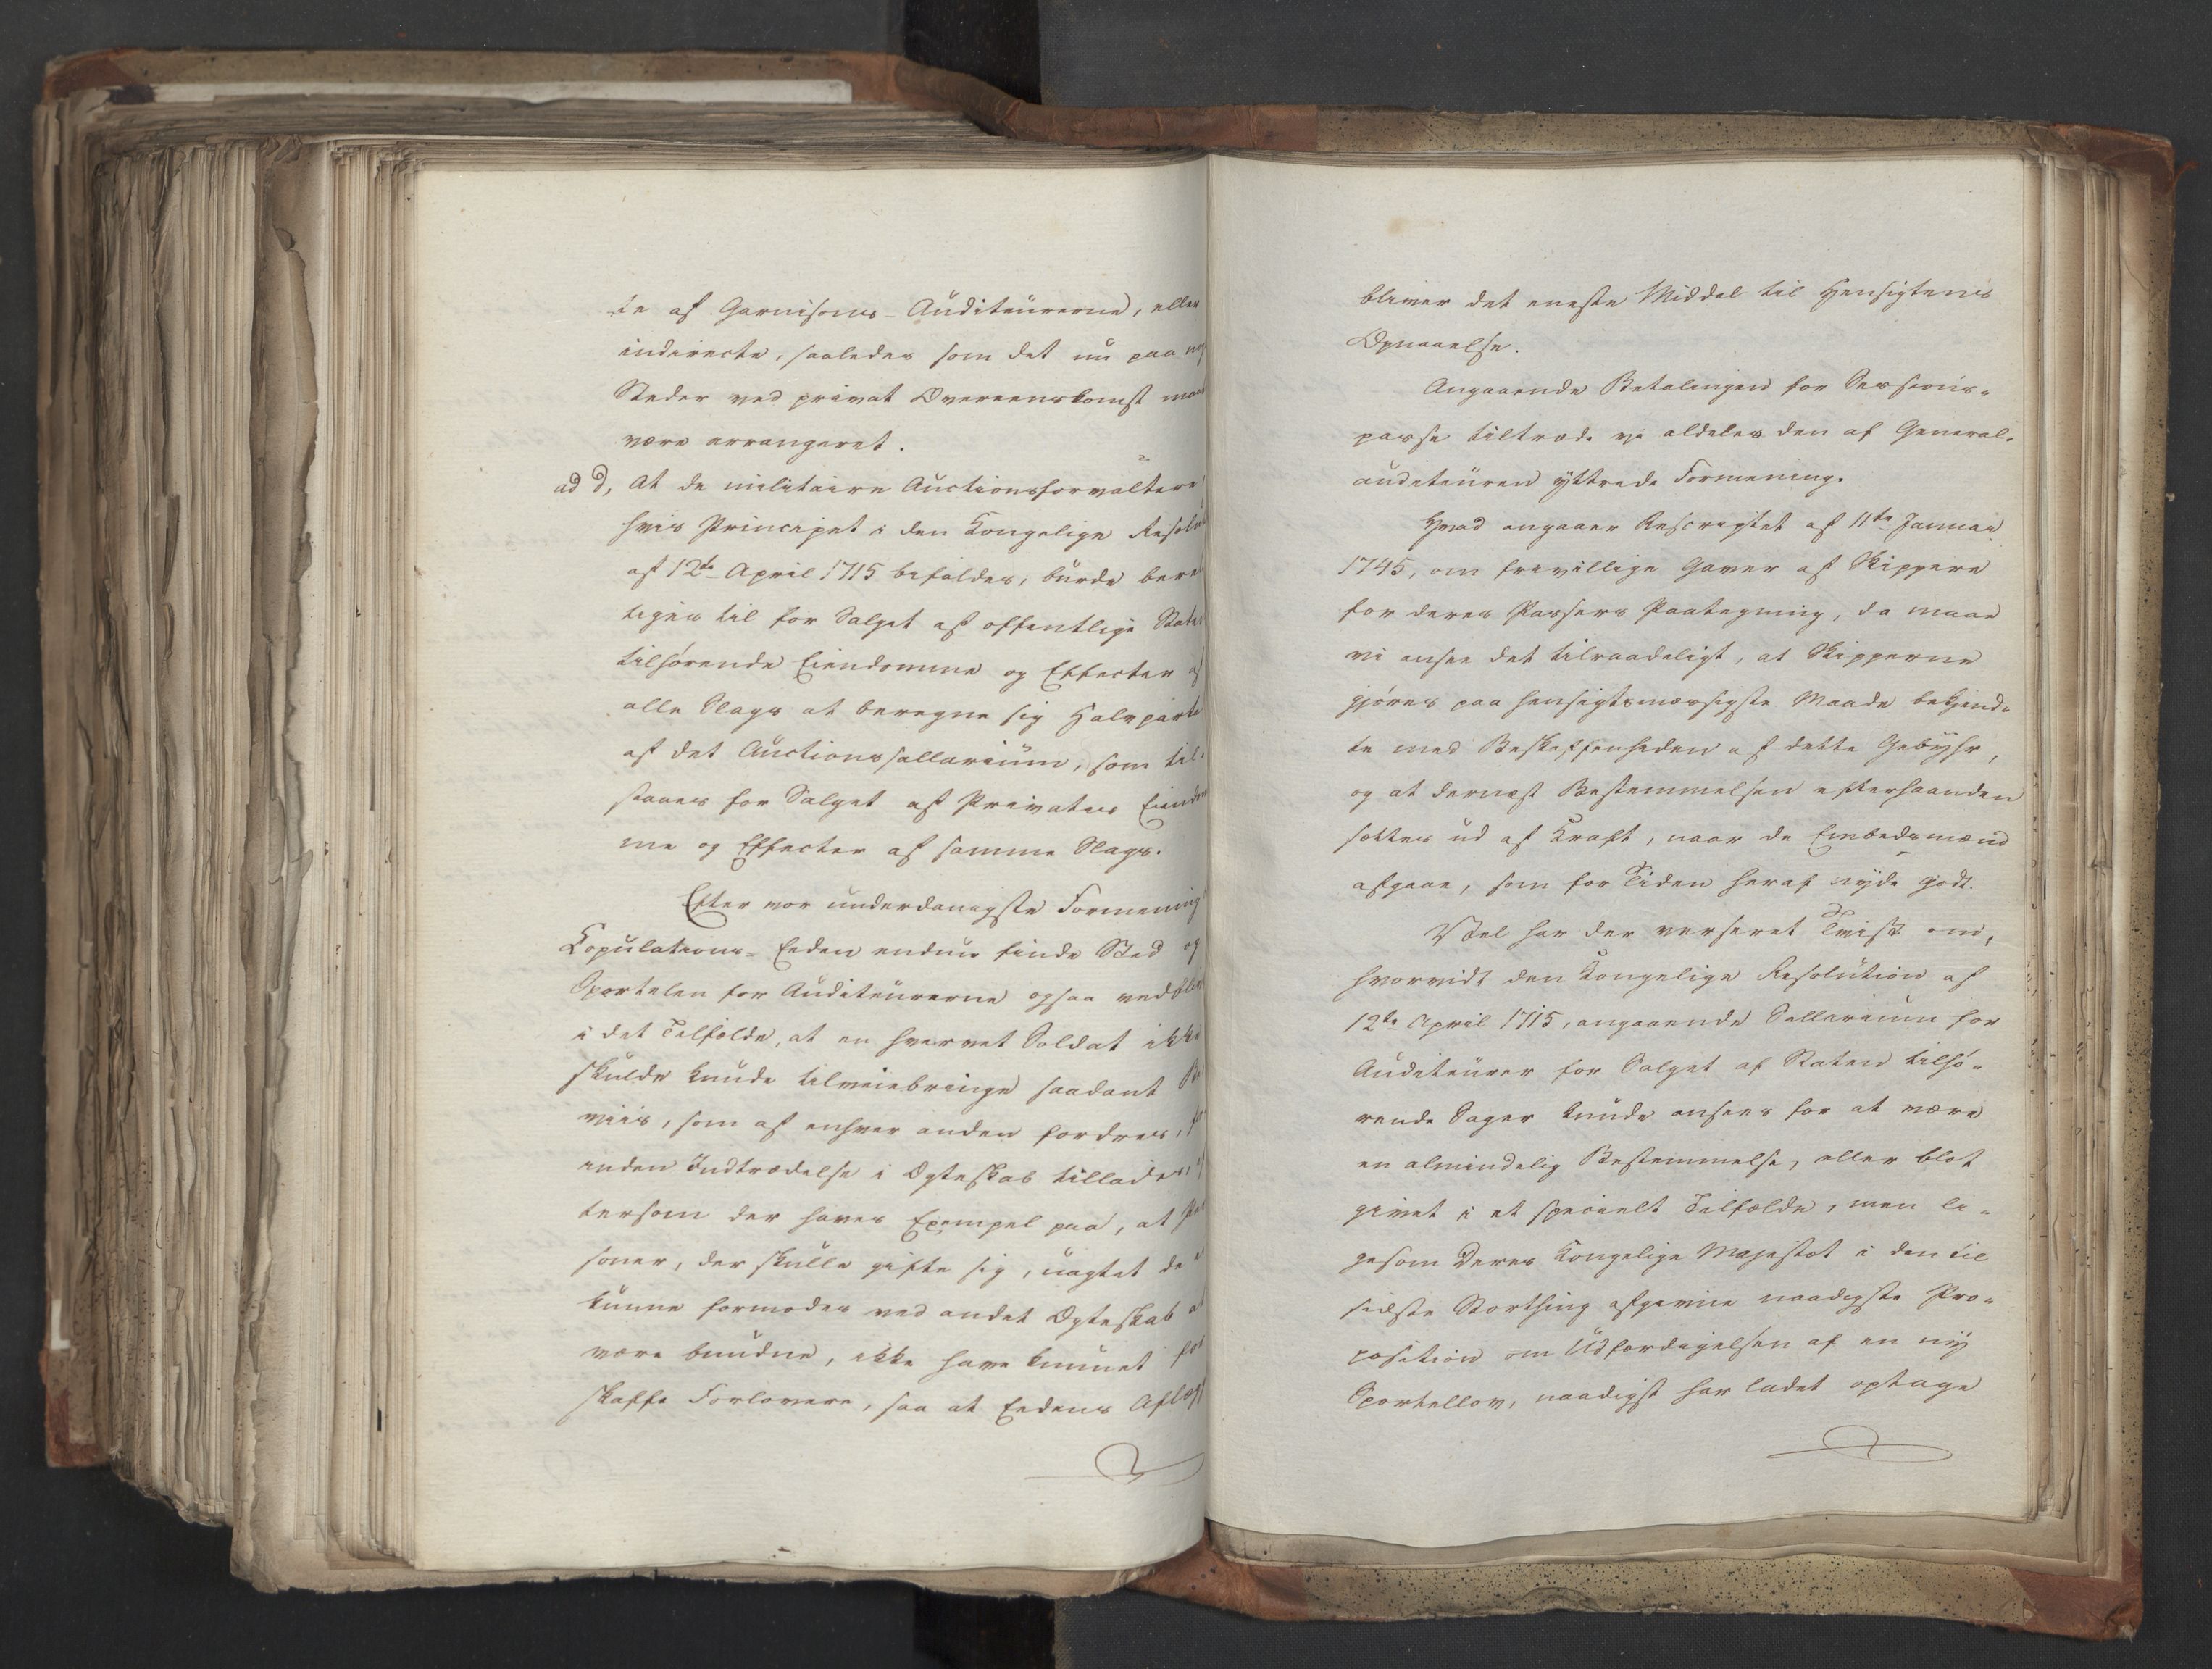 te af Garnisons-Auditeurerne, eller
indirecte, saaledes som det nu paa
Steder ved privat Overeenskomst maa
være arrangeret.
ad d, At de militaire Auctionsforvaltere
hvis Principet i den Kongelige Resolu
af 12te April 1715 befaldes, burde bere
tiges til for Salget af offentlige Staten
tilhørende Eiendomme og Effecter af
alle Slags at beregne sig Halvparte
af det Auctionssallarium, som til-
staaes for Salget af Privates Eiendom
me og Effecter af samme Slags.
Efter vor underdanigste Formening
Copulations-Eeden endnu finde Sted og
Sportelen for Auditeurerne ogsaa vedbliv
i det Tilfælde, at en hvervet Soldat ikke
skulde kunde tilveiebringe saadant Be
viis, som af enhver anden fordres, før
inden Indtrædelse i Ægteskab tillades, ef
tersom der haves Exempel paa, at Per
soner, der skulle gifte sig, uagtet de
kunne formodes ved andet Ægteskab at
være bundne, ikke have kunnet for
skaffe Forlovere, saa at Eedens Aflægg
bliver det eneste Middel til Hensigtens
Opnaaelse.
Angaaende Betalingen for Sessions-
passe tiltræde vi aldeles den af General-
auditeuren yttrede Formening.
Hvad angaaer Rescriptet af 11te Januar
1745, om frivillige Gaver af Skippere
for deres Passers Paategning, da maae
vi ansee det tilraadeligt, at Skipperne
gjøres paa hensigtsmæssigste Maade bekjend-
te med Beskaffenheden af dette Gebyhr,
og at dernæst Bestemmelsen efterhaanden
sættes ud af Kraft, naar de Embedsmænd
afgaae, som for Tiden heraf nyde godt.
Vel har der verseret Tvist om,
hvorvidt den Kongelige Resolution af
12te April 1715, angaaende Sallarium for
Auditeurer for Salget af Staten tilhø-
rende Sager kunde ansees for at være
en almindelig Bestemmelse, eller blot
givet i et specielt Tilfælde, men li-
gesom Deres Kongelige Majestæt i den til
sidste Storthing afgivne naadigste Pro-
position om Udfærdigelsen af en ny
Sportellov, naadigst har ladet optage